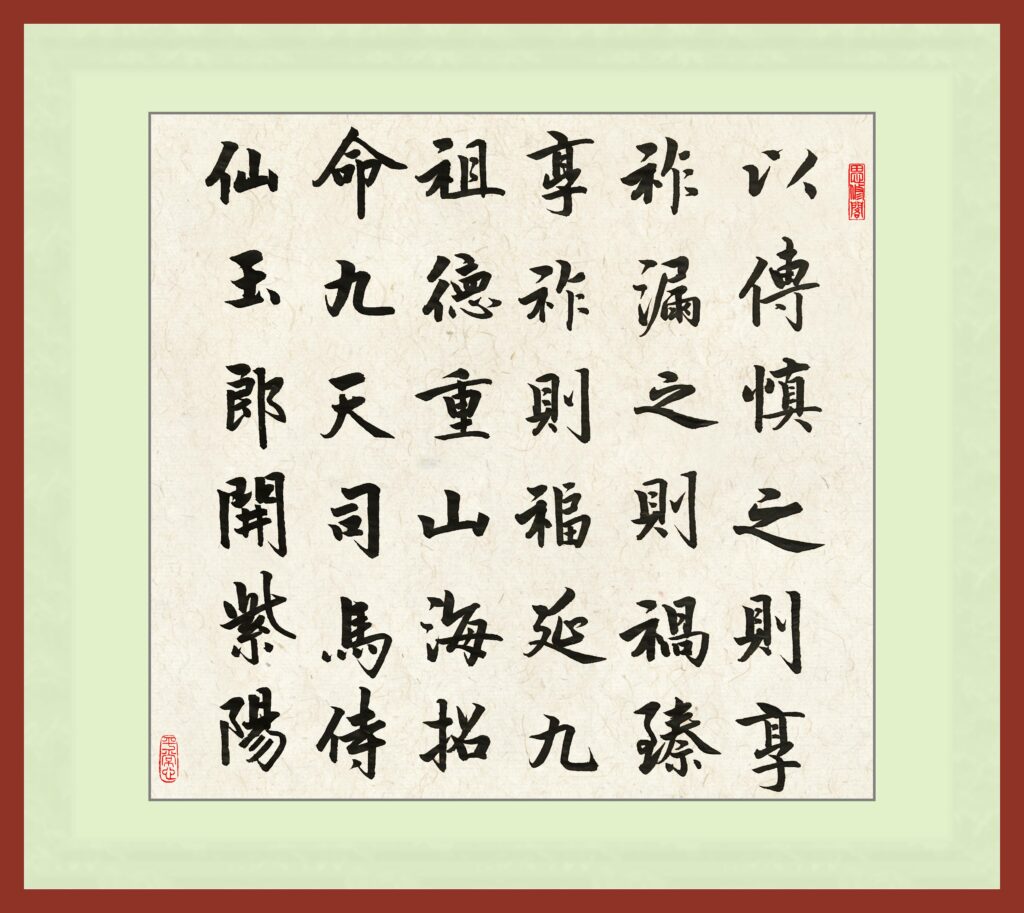 以傳慎之則享
祚漏之則禍臻
享祚則福延九
祖德重山海招
命九天司馬侍
仙玉郎開紫陽